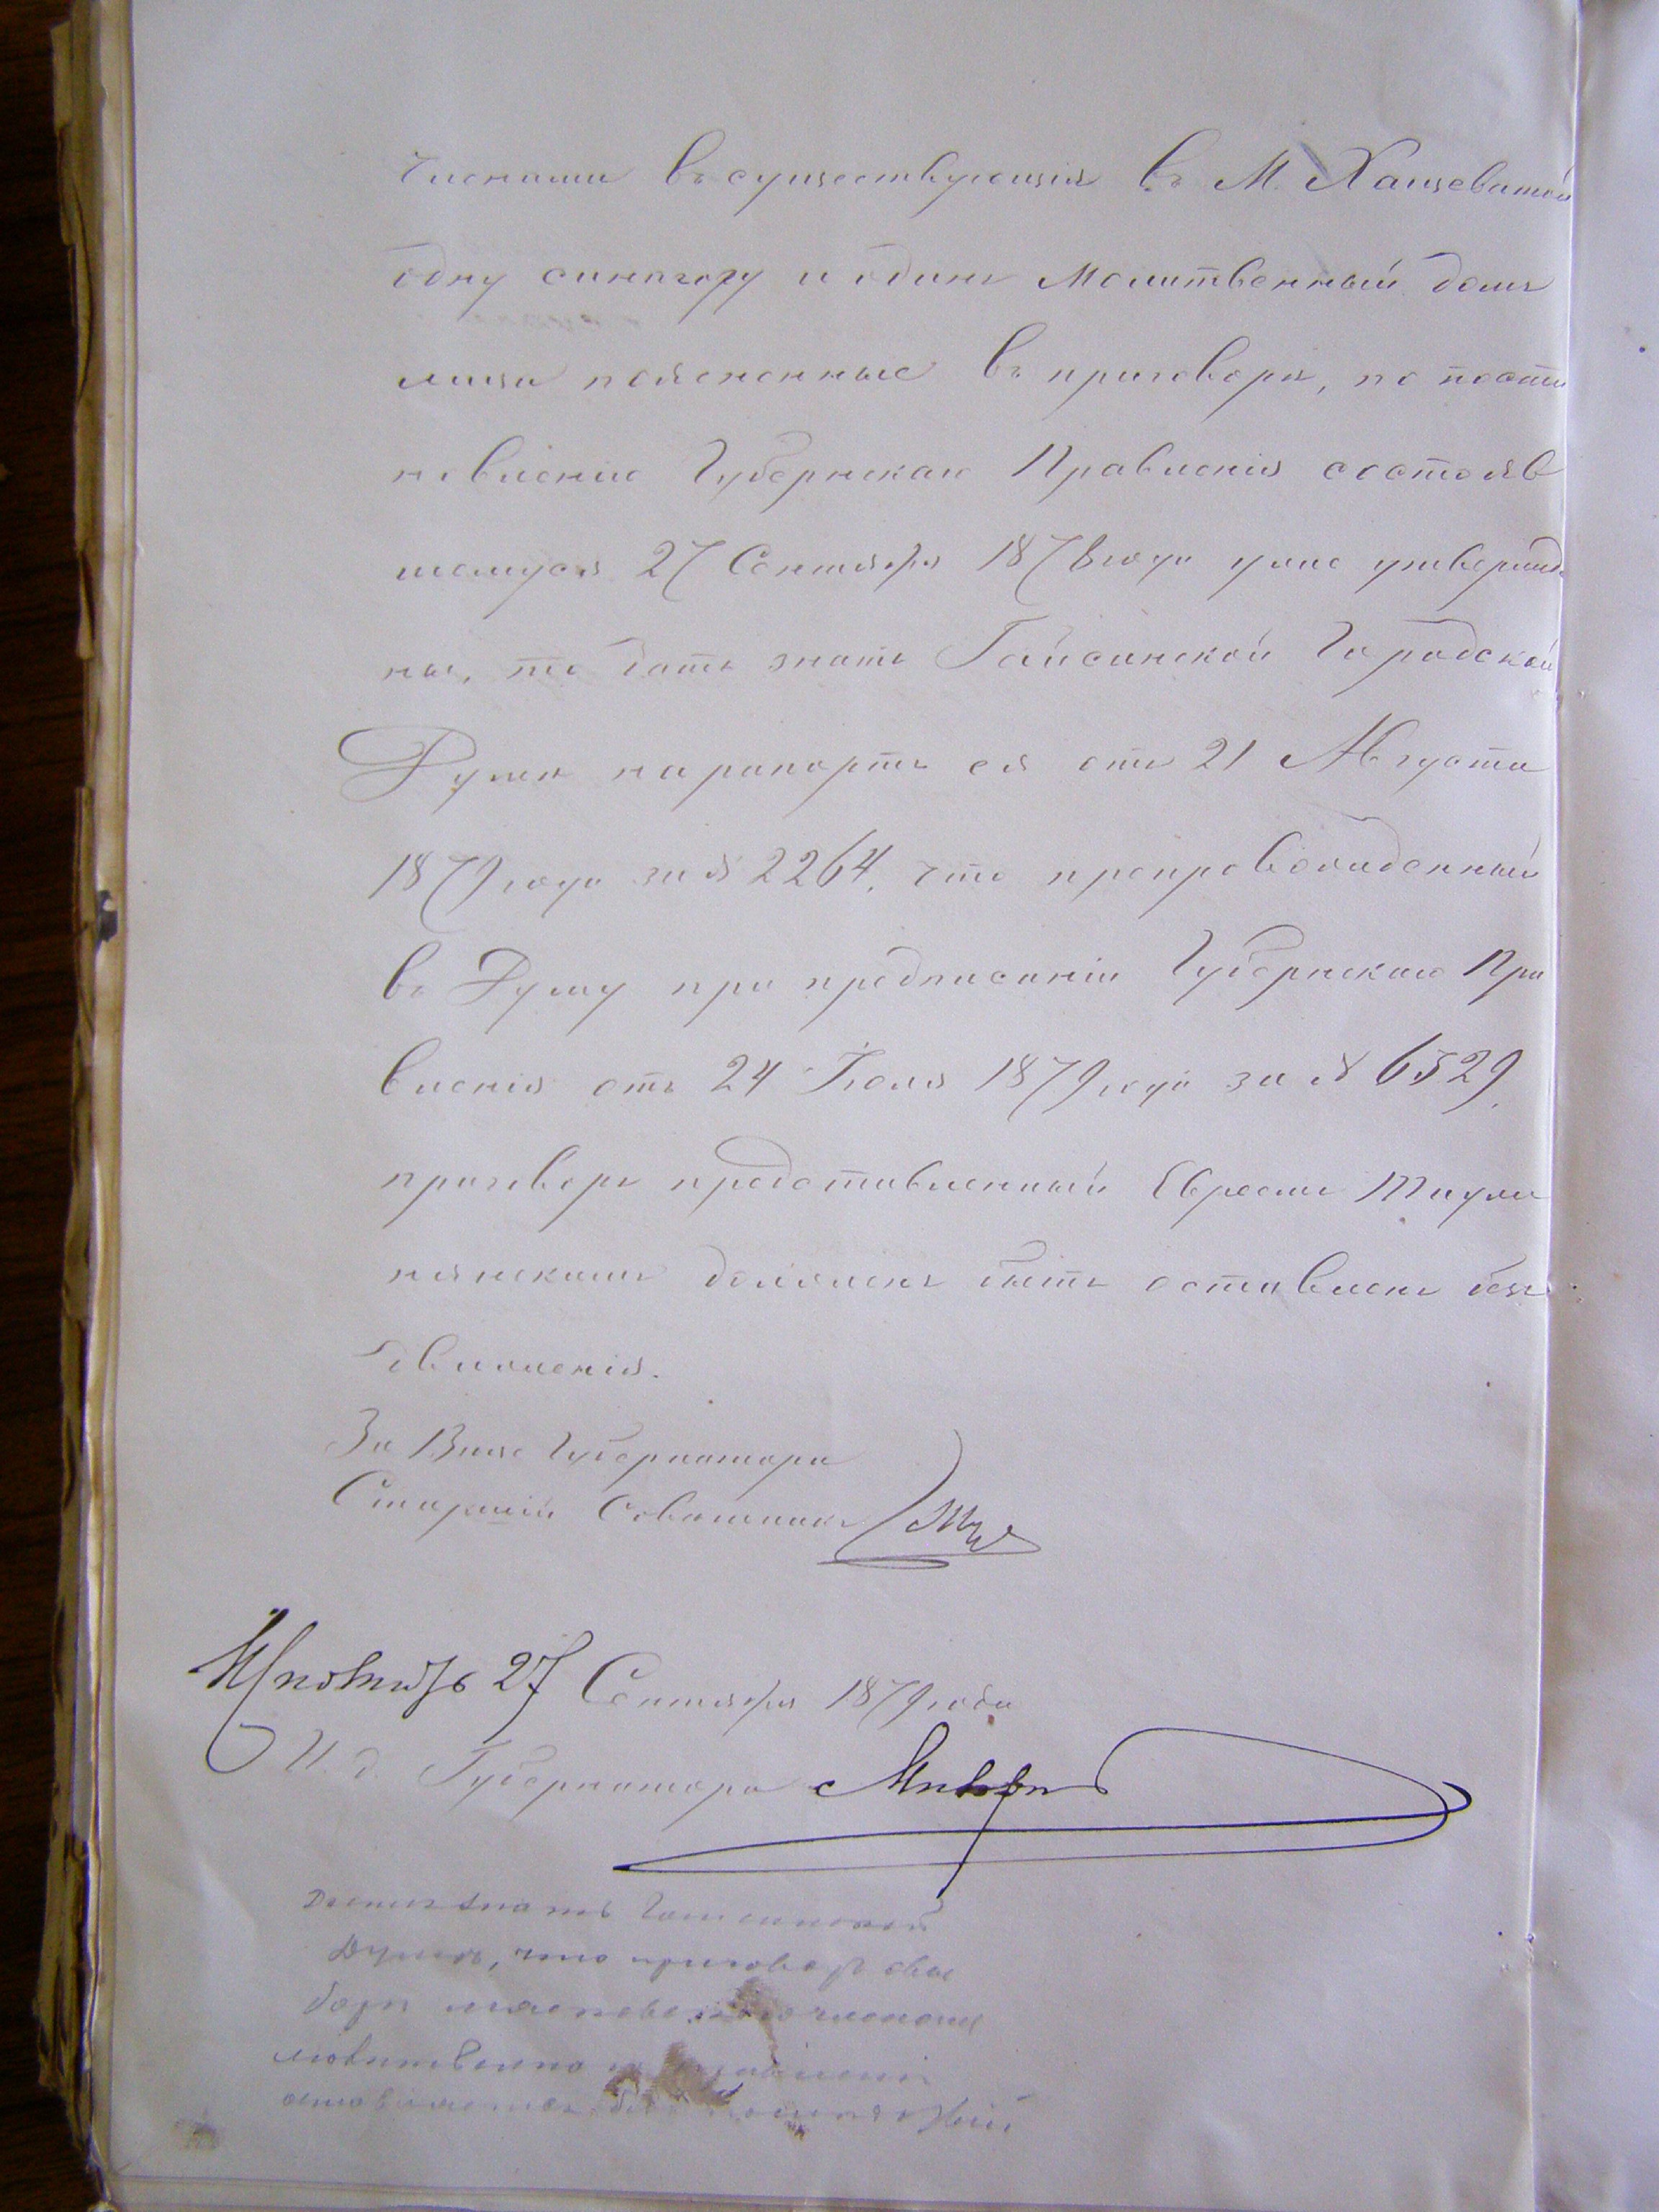 членами въ существующія въ М. Хащеватой
одну синагогу и одинъ Молитвенный домъ
лица поясненные въ приговорѣ, по поста
новленію Губернскаго Правленія состояв
шемуся 27 Сентября 1878 года уже утвержде
ны, то дать знать Гайсинской Городской
Думѣ на рапортъ ея отъ 21 Августа
1879 года за № 2264. что препровожденный
въ Думу при предписаніи Губернскаго Пра
вленія отъ 24 Іюля 1879 года за № 6529.
приговоръ представленный Евреемъ
долженъ быть оставленъ безъ
движенія.
За Вице Губернатора
Старшій Совѣтникъ
27 Сентября 1879 года
И. д. Губернатора
Дать знать Гайсинской
Думѣ, что приговоръ о вы
борѣ членами
оставляется безъ